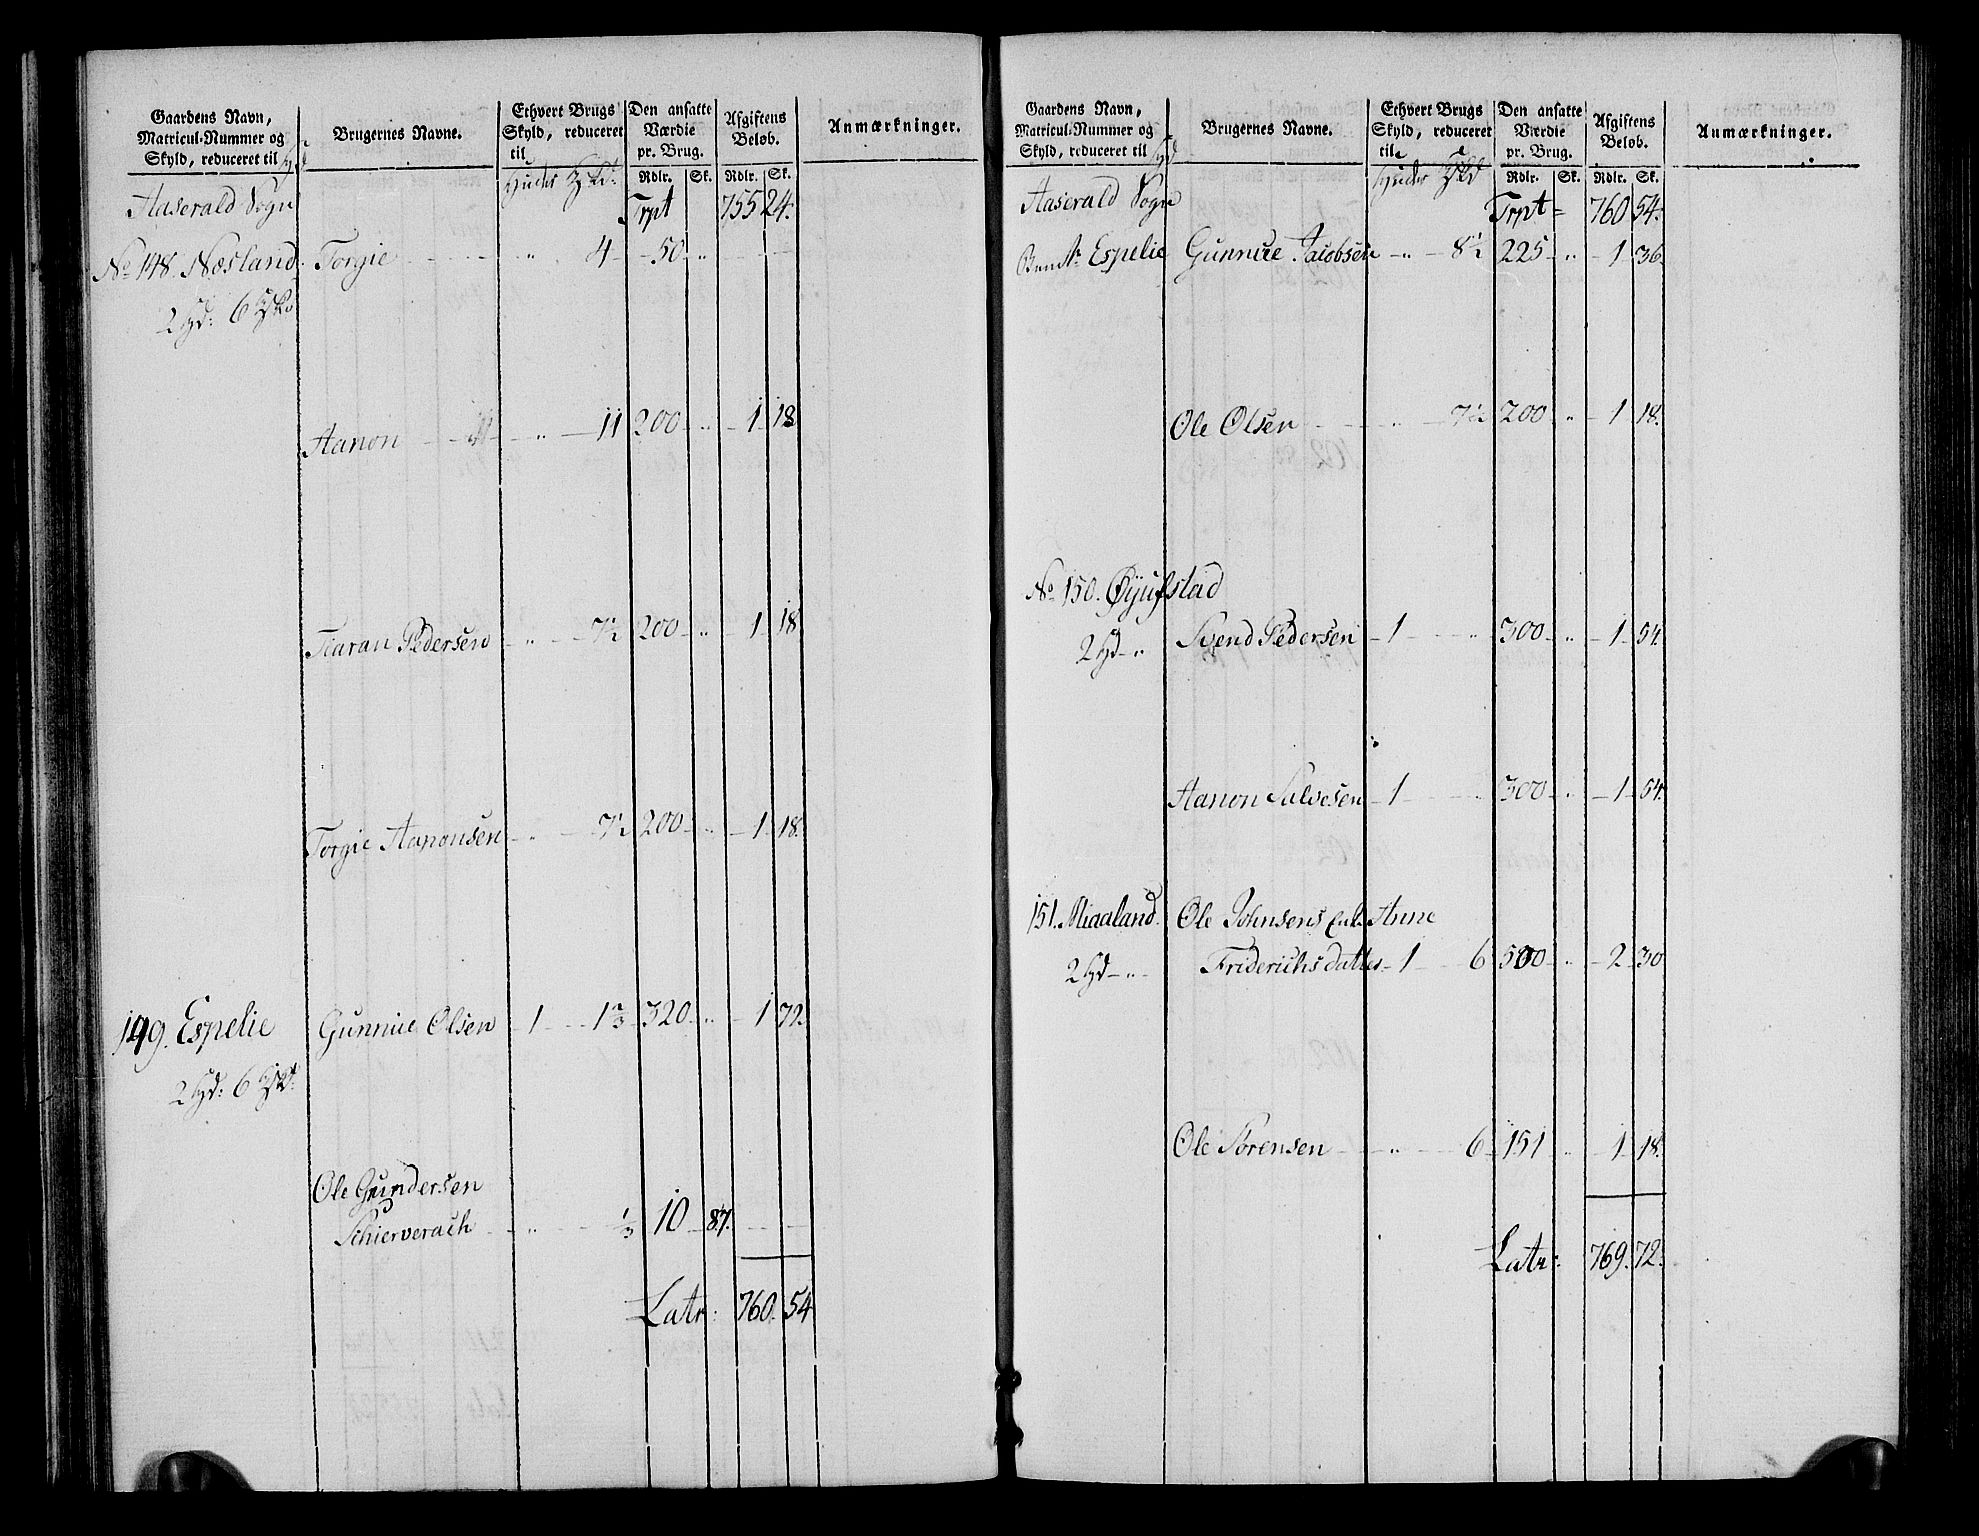 Gaardens Navn, Matricul-Nummer og Skyld, reduceret til Hd | Brugernes Navne. | Ethvert Brugs Skyld, reduceret til Huder | Den ansatte Værdie pr. Brug. Rdlr. Sk. | Afgiftens Beløb. Rdlr. Sk. | Anmærkninger.
Aaserald Sogn Trpt 755 24.
No 148. Næsland Torgie „ 4 50 „
2 Hd: 6
Aanon „ 11 200 „ 1 18
Taran Pedersen „ 7½ 200 „ 1 18
Torgie Aanonsen „ 7½ 200 „ 1 18.
149. Espelie Gunnue Olsen 1 1⅔ 320 „ 1 72.
2 Hd: 6
Ole Gundersen
Schierverach „ ⅓ 10 87.
Latr: 760. 54
Gaardens Navn, Matricul-Nummer og Skyld, reduceret til Hd | Brugernes Navne. | Ethvert Brugs Skyld, reduceret til Huder | Den ansatte Værdie pr. Brug. Rdlr. Sk. | Afgiftens Beløb. Rdlr. Sk. | Anmærkninger.
Aaserald Sogn Trpt 760 54.
Espelie Gunnue Jacobsen „ 8½ 225 „ 1 36.
Ole Olsen „ 7½ 200 „ 1 18.
No 150. Øyufstad
2 Hd „ Svend Pedersen 1 „ 300 „ 1 54.
Aanon Salvesen 1 „ 300 „ 1 54.
151. Miaaland. Ole Johnsens Enke Anne
2 Hd „ Friderichsdatter 1 6 500 „ 2 30
Ole Sørensen „ 6 151 „ 1 18.
Latr: 769. 72.